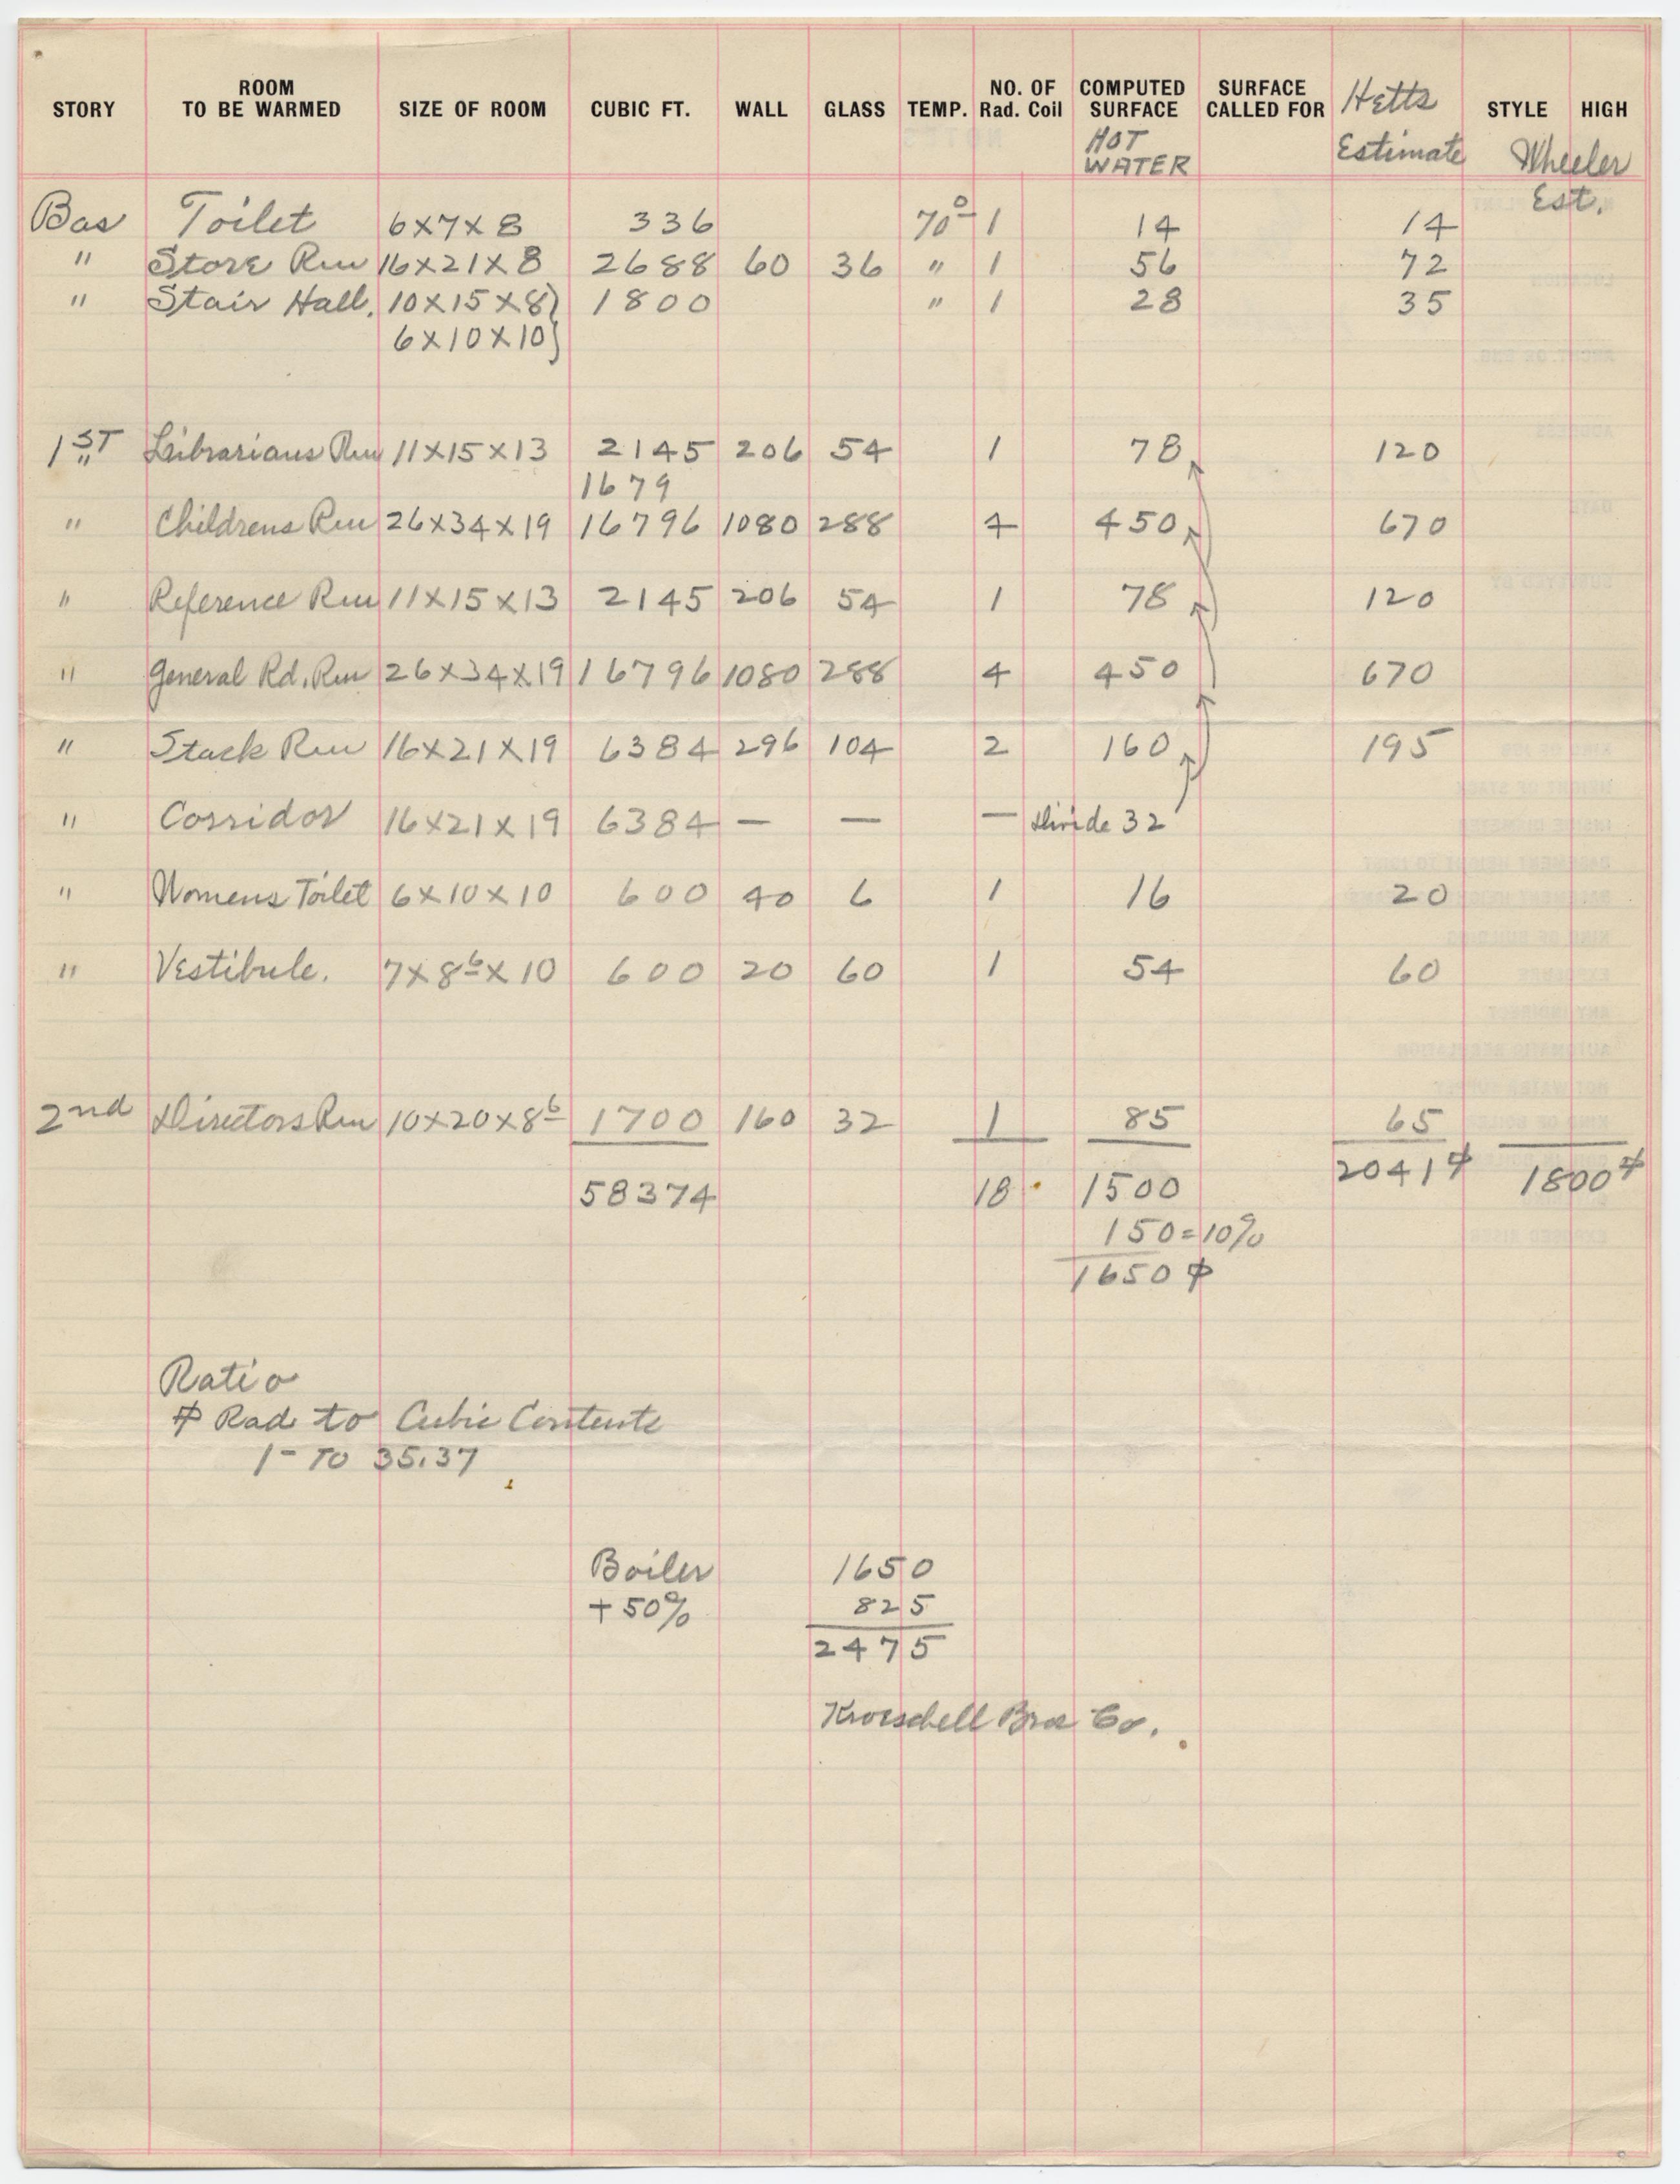 STORY ROOM TO BE WARMED SIZE OF ROOM CUBIC FT. WALL GLASS TEMP. NO. OF Rad. Coil COMPUTED SURFACE HOT WATER SURFACE CALLED FOR Hetts Estimate STYLE HIGH Wheeler Est.
Bas Toilet 6x7x8 336 70° 1 14 14
" Store Rm 16x21x8 2688 60 36 " 1 56 72
" Stair Hall. 10x15x8) 1800 " 1 28 35
6x10x10)
1ST " Librarians Rm 11x15x13 2145 206 54 1 78 120
1679
" Childrens Rm 26x34x19 16796 1080 288 4 450 670
" Reference Rm 11x15x13 2145 206 54 1 78 120
" General Rd. Rm 26x34x19 16796 1080 288 4 450 670
" Stack Rm 16x21x19 6384 296 104 2 160 195
" Corridor 16x21x19 6384 — — — Divide 32
" Womens Toilet 6x10x10 600 40 6 1 16 20
" Vestibule. 7x8⁶x10 600 20 60 1 54 60
2nd Directors Rm 10x20x8⁶ 1700 160 32 1 85 65
58374 18 1500 2041⌗ 1800⌗
150=10%
1650⌗
Ratio
⌗ Rad to Cubic Contents
1- TO 35.37
Boiler 1650
+50% 825
2475
Kroeschell Bros Co.